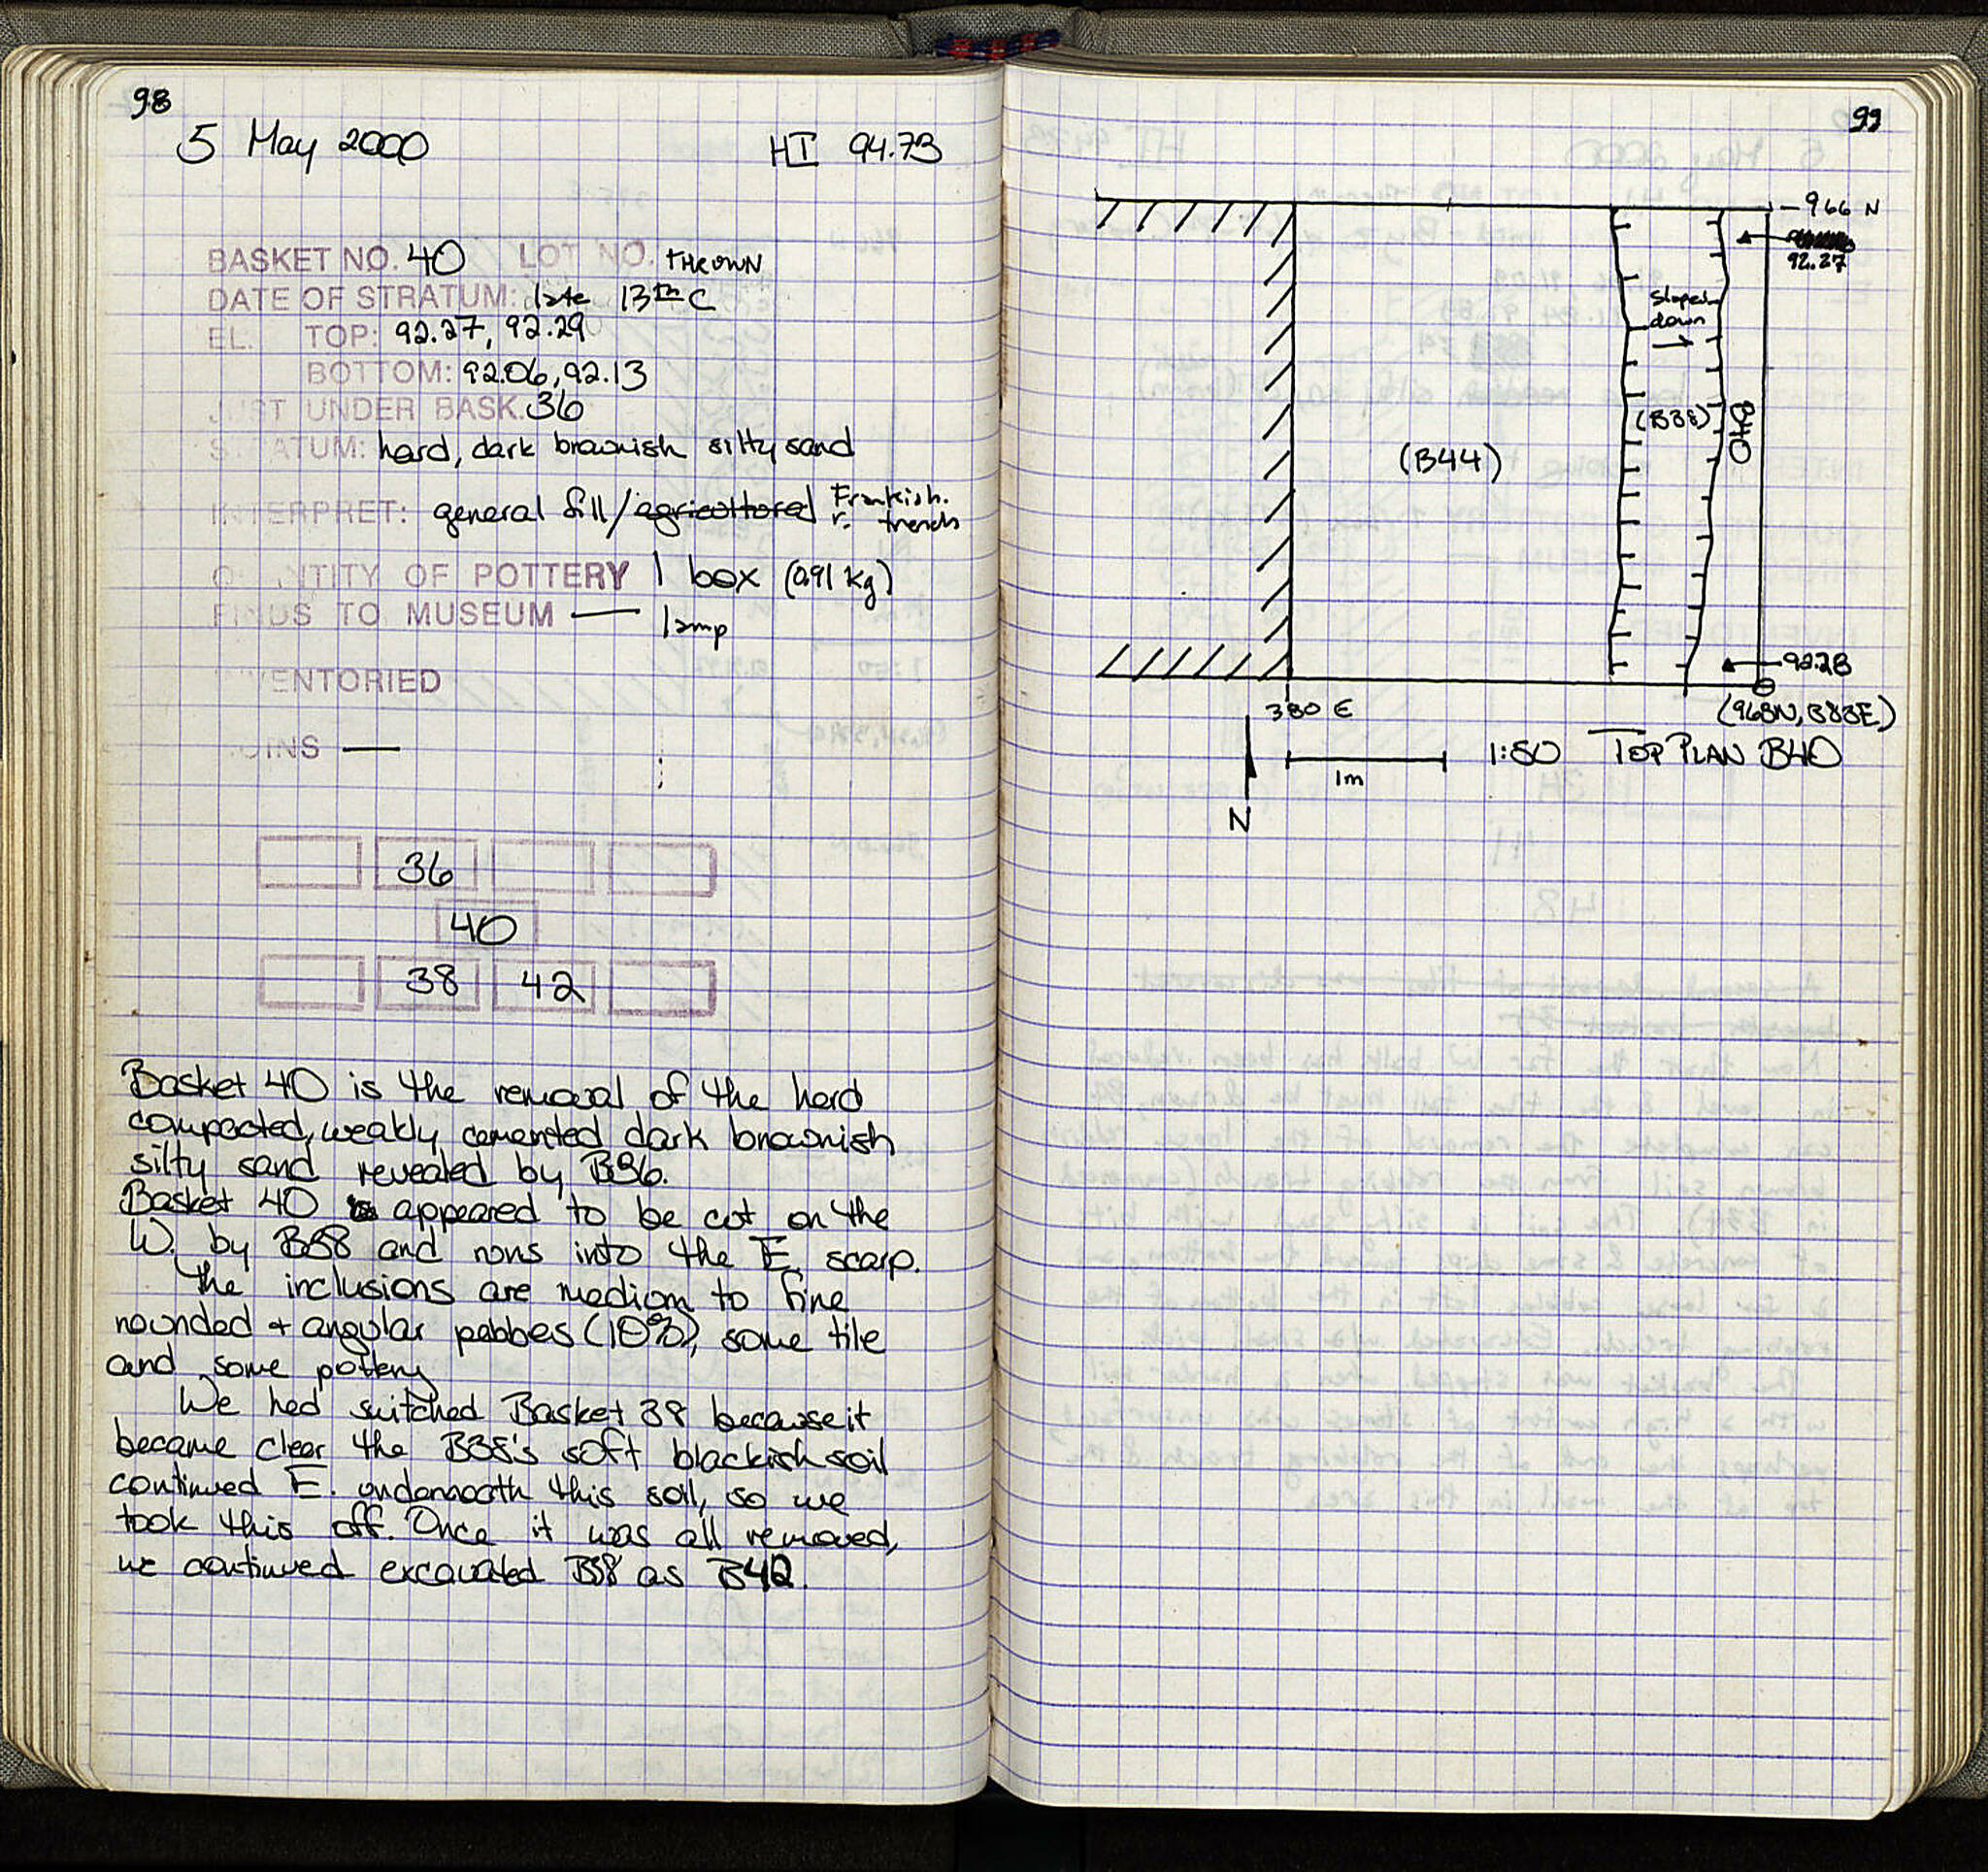 98
5 May 2000 HI 94.73
BASKET NO. 40 LOT NO. thrown
DATE OF STRATUM: late 13th C
EL. TOP: 92.27, 92.29
BOTTOM: 92.06, 92.13
JUST UNDER BASK. 36
STRATUM: hard, dark brownish silty sand
INTERPRET: general fill/agricultural Frankish. r. trench
QUANTITY OF POTTERY 1 box (0.91 kg)
FINDS TO MUSEUM — lamp
INVENTORIED
COINS —
36
40
38 42
Basket 40 is the removal of the hard
compacted, weakly cemented dark brownish
silty sand revealed by B36.
Basket 40 appeared to be cut on the
W. by B38 and runs into the E. scarp.
The inclusions are medium to fine
rounded + angular pebbles (10%), some tile
and some pottery
We had switched Basket 38 because it
became clear the B38's soft blackish soil
continued E. underneath this soil, so we
took this off. Once it was all removed,
we continued excavated B38 as B42.
99
966 N
92.27
sloped
down
(B38)
B40
(B44)
92.28
380 E
(963N, 383E)
1:50 TOP PLAN B40
1m
N